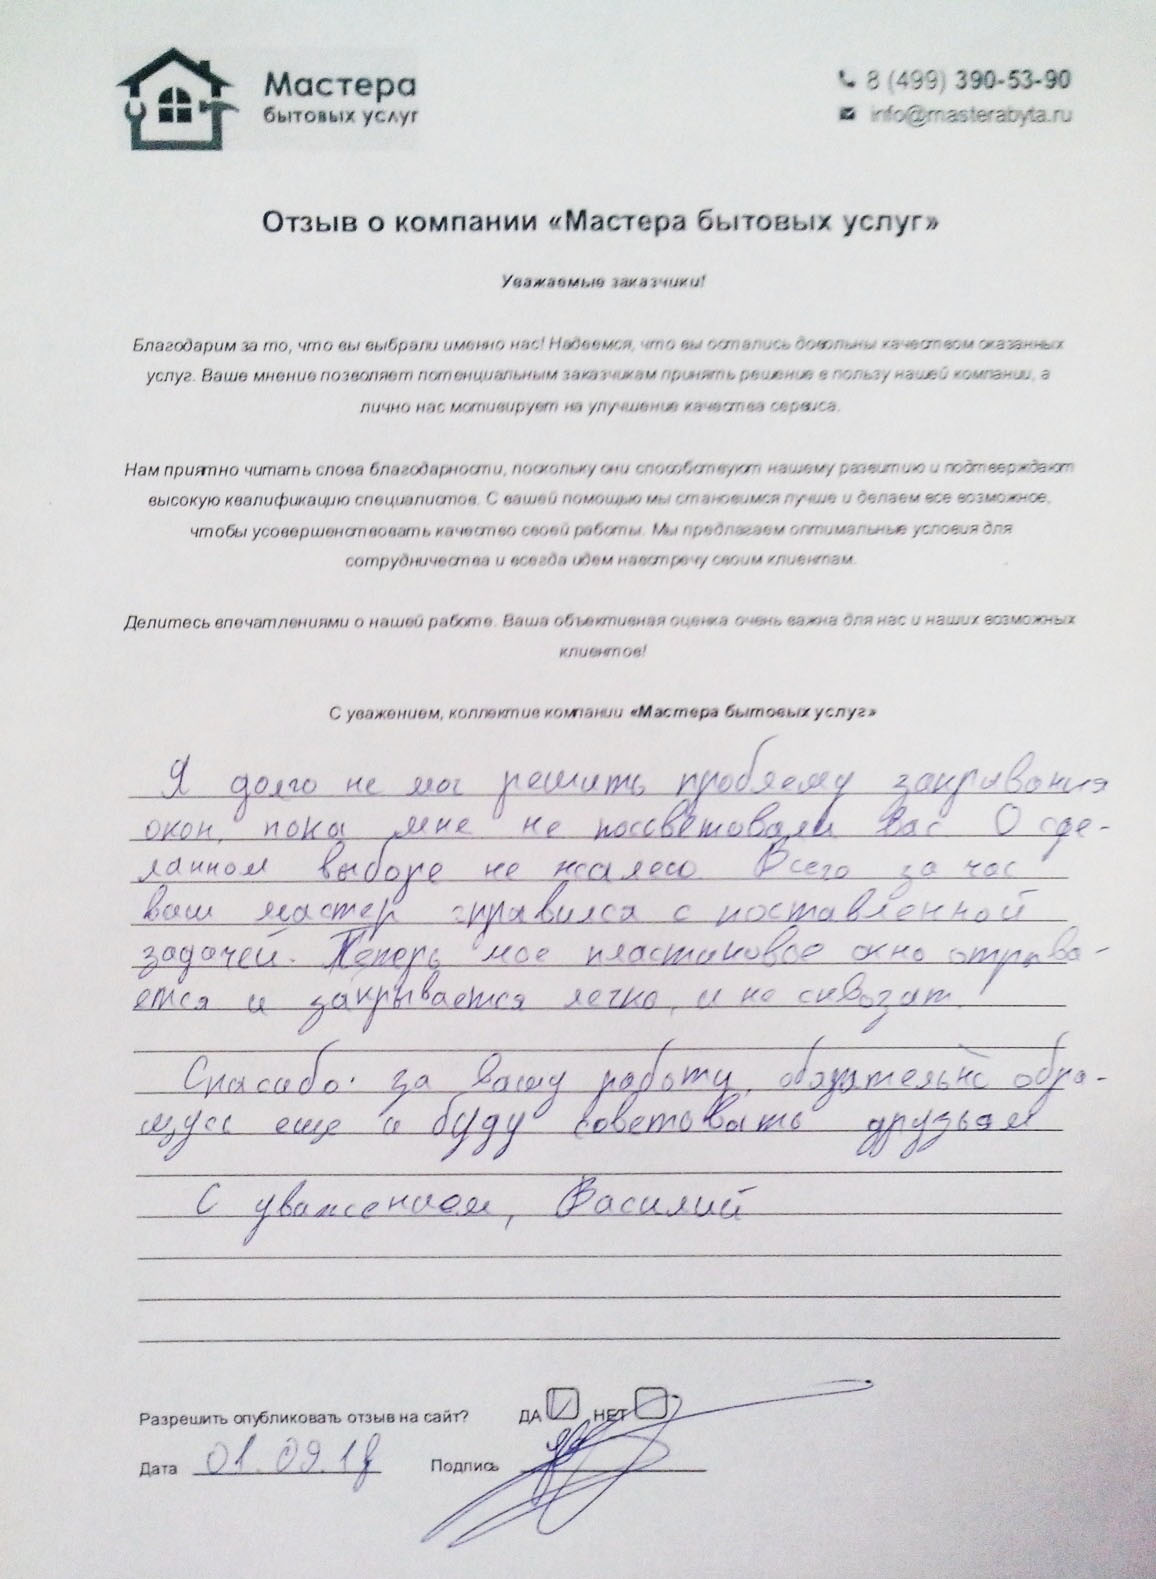 Мастера
бытовых услуг
8 (499) 390-53-90
info@masterabyta.ru
Отзыв о компании «Мастера бытовых услуг»
Уважаемые заказчики!
Благодарим за то, что вы выбрали именно нас! Надеемся, что вы остались довольны качеством оказанных
услуг. Ваше мнение позволяет потенциальным заказчикам принять решение в пользу нашей компании, а
лично нас мотивирует на улучшение качества сервиса.
Нам приятно читать слова благодарности, поскольку они способствуют нашему развитию и подтверждают
высокую квалификацию специалистов. С вашей помощью мы становимся лучше и делаем все возможное,
чтобы усовершенствовать качество своей работы. Мы предлагаем оптимальные условия для
сотрудничества и всегда идем навстречу своим клиентам.
Делитесь впечатлениями о нашей работе. Ваша объективная оценка очень важна для нас и наших возможных
клиентов!
С уважением, коллектив компании «Мастера бытовых услуг»
Я долго не мог решить проблему закрывания
окон, пока мне не поссветовали Вас О сде-
ланном выборе не жалею. Всего за час
ваш мастер справился с поставленной
задачей. Теперь мое пластиковое окно открыва-
ется и закрывается легко, и не сквозит.
Спасибо за Вашу работу, обязательно обра-
щусь еще и буду советовать друзьям
С уважением, Василий
Разрешить опубликовать отзыв на сайт? ДА НЕТ
Дата 01.09.18 Подпись